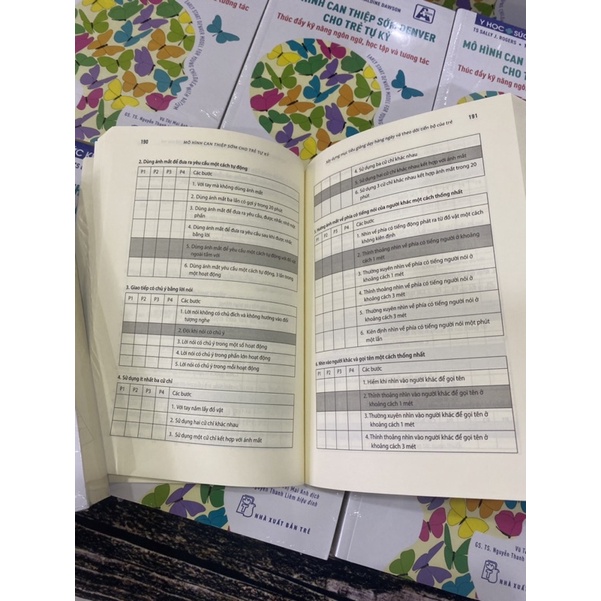 MÔ HÌNH CAN THIỆP SỚM DENVER
CHO TRẺ TỰ KỶ
Thúc đẩy kỹ năng ngôn ngữ, học tập và tương tác
Y HỌC
TS. SALLY J. ROGERS
MÔ HÌNH CAN THIỆP
CHO T
Thúc đẩy kỹ năng ngôn
190 MÔ HÌNH CAN THIỆP SỚM CHO TRẺ TỰ KỶ
2. Dùng ánh mắt để đưa ra yêu cầu một cách tự động
P1 P2 P3 P4 Các bước
1. Với tay mà không dùng ánh mắt
2. Dùng ánh mắt ba lần có gợi ý trong 20 phút
3. Dùng ánh mắt để đưa ra yêu cầu, được nhắc nhở một phần
4. Dùng ánh mắt để đưa ra yêu cầu sau khi được nhắc bằng lời
5. Dùng ánh mắt để yêu cầu một cách tự động với đồ vật ngoài tầm với
6. Dùng ánh mắt yêu cầu một cách tự động, 3 lần trong một hoạt động
3. Giao tiếp có chủ ý bằng lời nói
P1 P2 P3 P4 Các bước
1. Lời nói không có chủ đích và không hướng vào đối tượng nghe
2. Đôi khi nói có chủ ý
3. Lời nói có chủ ý trong một số hoạt động
4. Lời nói có chủ ý trong phần lớn hoạt động
5. Lời nói có chủ ý trong mỗi hoạt động
4. Sử dụng ít nhất ba cử chỉ
P1 P2 P3 P4 Các bước
1. Với tay nắm lấy đồ vật
2. Sử dụng hai cử chỉ khác nhau
3. Sử dụng một cử chỉ kết hợp với ánh mắt
Xây dựng mục tiêu giảng dạy hằng ngày và theo dõi tiến bộ của trẻ 191
4. Sử dụng ba cử chỉ khác nhau
5. Sử dụng hai cử chỉ khác nhau kết hợp với ánh mắt
6. Sử dụng 3 cử chỉ khác nhau kết hợp ánh mắt trong 20 phút
5. Hướng ánh mắt về phía có tiếng nói của người khác một cách thống nhất
P1 P2 P3 P4 Các bước
1. Nhìn về phía có tiếng động phát ra từ đồ vật một cách không kiên định
2. Thỉnh thoảng nhìn về phía có tiếng người ở khoảng cách 1 mét
3. Thường xuyên nhìn về phía có tiếng người nói ở khoảng cách 1 mét
4. Thỉnh thoảng nhìn về phía có tiếng người nói ở khoảng cách 3 mét
5. Thường xuyên nhìn về phía có tiếng người nói ở khoảng cách 3 mét
6. Kiên định nhìn về phía có tiếng người nói một phút một lần
6. Nhìn vào người khác và gọi tên một cách thống nhất
P1 P2 P3 P4 Các bước
1. Hiếm khi nhìn vào người khác để gọi tên
2. Thỉnh thoảng nhìn vào người khác để gọi tên ở khoảng cách 1 mét
3. Thường xuyên nhìn vào người khác để gọi tên ở khoảng cách 1 mét
4. Thỉnh thoảng nhìn vào người khác để gọi tên ở khoảng cách 3 mét
Mai Anh dịch
Nguyễn Thanh Liêm hiệu đính
NHÀ XUẤT BẢN TRẺ
GS. TS. Nguyễn Thanh
NHÀ XUẤT